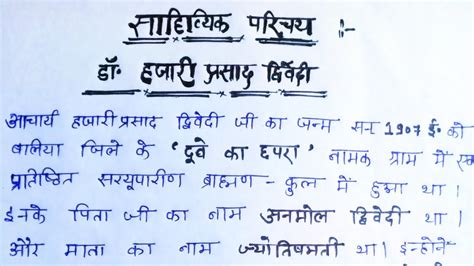 साहित्यिक परिचय :-
डॉ. हजारी प्रसाद द्विवेदी
आचार्य हजारी प्रसाद द्विवेदी जी का जन्म सन 1907 ई॰ को
बालिया जिले के 'दूवे का छपरा' नामक ग्राम में एक
प्रतिष्ठित सरयूपारीण ब्राह्मण - कुल में हुआ था।
इनके पिता जी का नाम अनमोल द्विवेदी था।
और माता का नाम ज्योतिषमती था। इन्होने